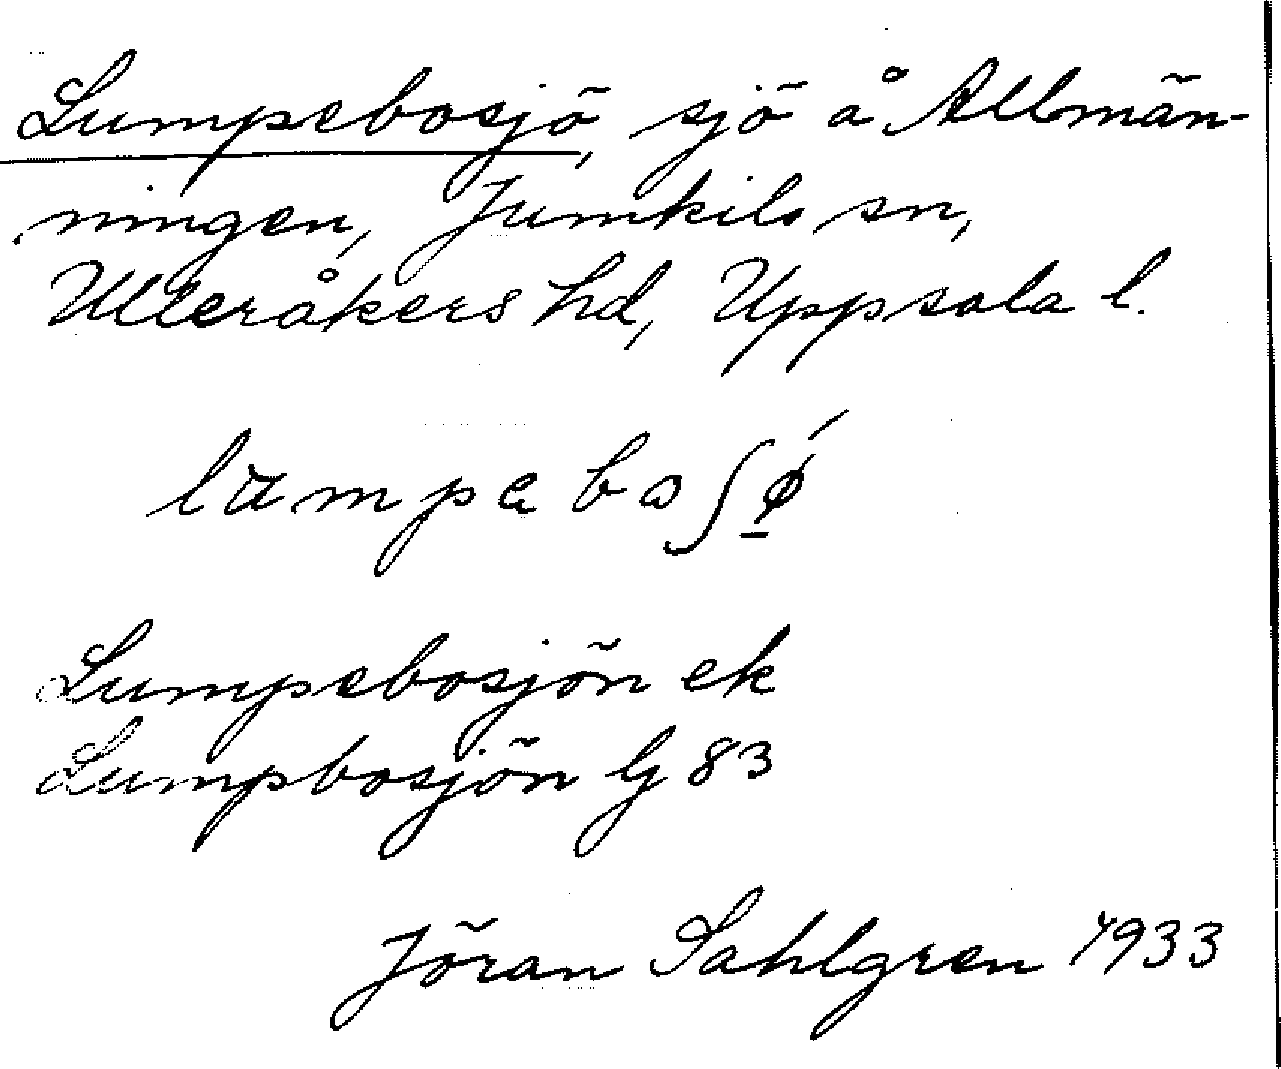 Lumpebosjö, sjö å Allmän-
ningen, Jumkils sn,
Ulleråkers hd, Uppsala l.
Lumpebosjön ek
Lumpbosjön Gj 83
Jöran Sahlgren 1933